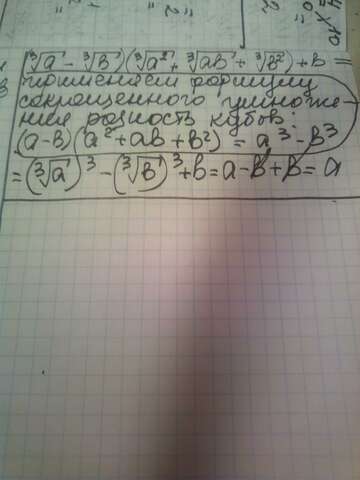 (∛a - ∛b)(∛a² + ∛ab + ∛b²) + b =
применяем формулу
сокращенного умноже-
ния разность кубов:
(a-b)(a² + ab + b²) = a³ - b³
= (∛a)³ - (∛b)³ + b = a - b + b = a